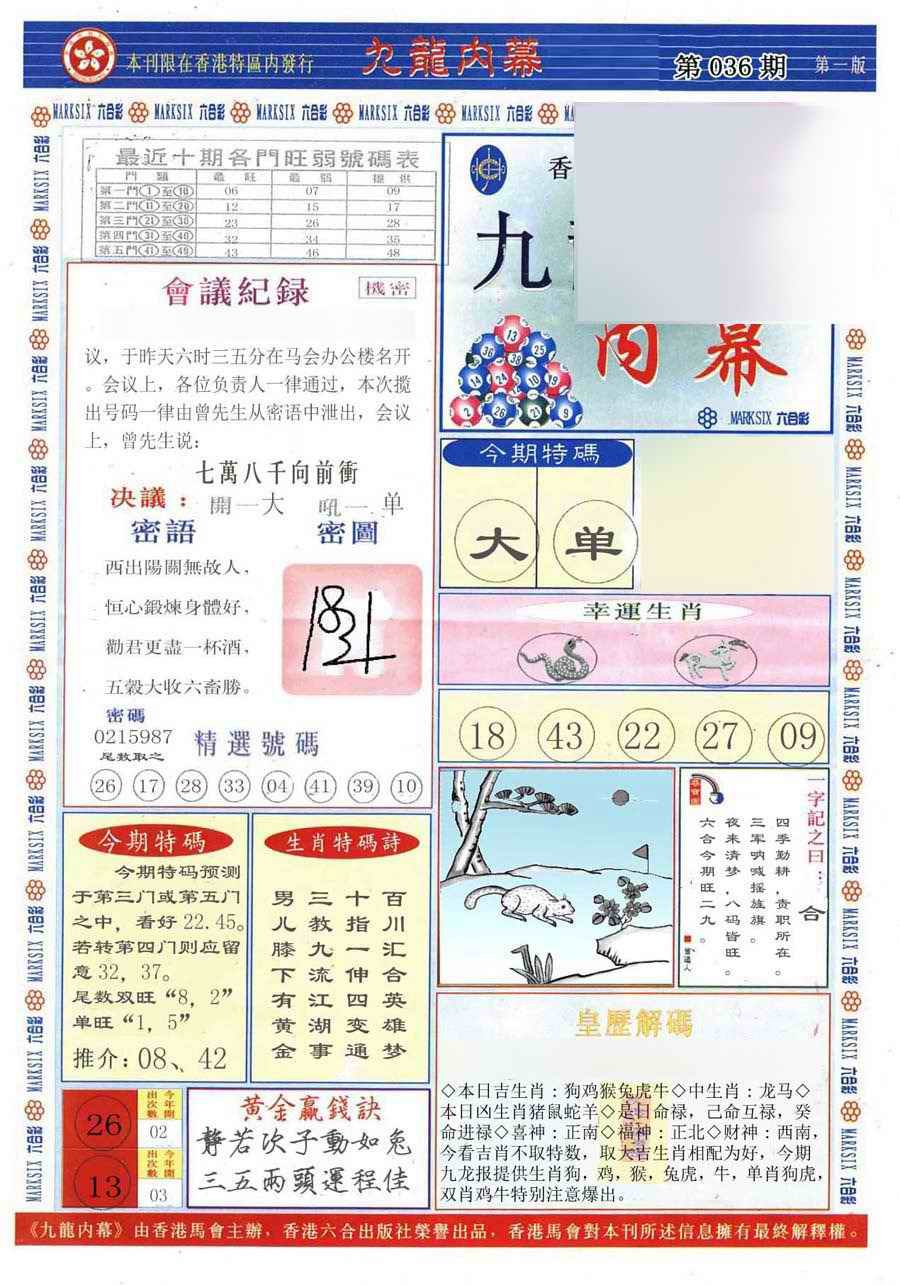 本刊限在香港特區内發行
九龍内幕
第 036 期
第一版
MARKSIX 六合彩
最近十期各門旺弱號碼表
門 類 最旺 最弱 提供
第一門①至⑩ 06 07 09
第二門⑪至⑳ 12 15 17
第三門㉑至㉚ 23 26 28
第四門㉛至㊵ 32 34 35
第五門㊶至㊾ 43 46 48
香
九
内幕
MARKSIX 六合彩
13
36 38 25
14 24 10 19
2 26 21 9
會議紀録
機密
议，于昨天六时三五分在马会办公楼名开
。会议上，各位负责人一律通过，本次揽
出号码一律由曾先生从密语中泄出，会议
上，曾先生说：
七萬八千向前衝
决議：開一大 吼一单
密語 密圖
西出陽關無故人，
恒心鍛煉身體好，
勸君更盡一杯酒，
五榖大收六畜勝。
密碼
0215987
尾数取之
精選號碼
26 17 28 33 04 41 39 10
今期特碼
大 单
幸運生肖
18 43 22 27 09
今期特碼
今期特码预测
于第三门或第五门
之中，看好22.45。
若转第四门则应留
意32，37。
尾数双旺“8，2”
单旺“1，5”
推介：08、42
生肖特碼詩
男三十百
儿教指川
膝九一汇
下流伸合
有江四英
黄湖变雄
金事通梦
一字記之曰：合
四季勤耕，责职所在。
三军呐喊摇旌旗。
夜来清梦，八码皆旺。
六合今期旺二九。
皇歷解碼
◇本日吉生肖：狗鸡猴兔虎牛◇中生肖：龙马◇
本日凶生肖猪鼠蛇羊◇是日命禄，己命互禄，癸
命进禄◇喜神：正南◇福神：正北◇财神：西南，
今看吉肖不取特数，取大吉生肖相配为好，今期
九龙报提供生肖狗，鸡，猴，兔虎，牛，单肖狗虎，
双肖鸡牛特别注意爆出。
26
今年開出次數
02
13
今年開出次數
03
黄金贏錢訣
静若次子動如兔
三五兩頭運程佳
《九龍内幕》由香港馬會主辦，香港六合出版社榮譽出品，香港馬會對本刊所述信息擁有最終解釋權。